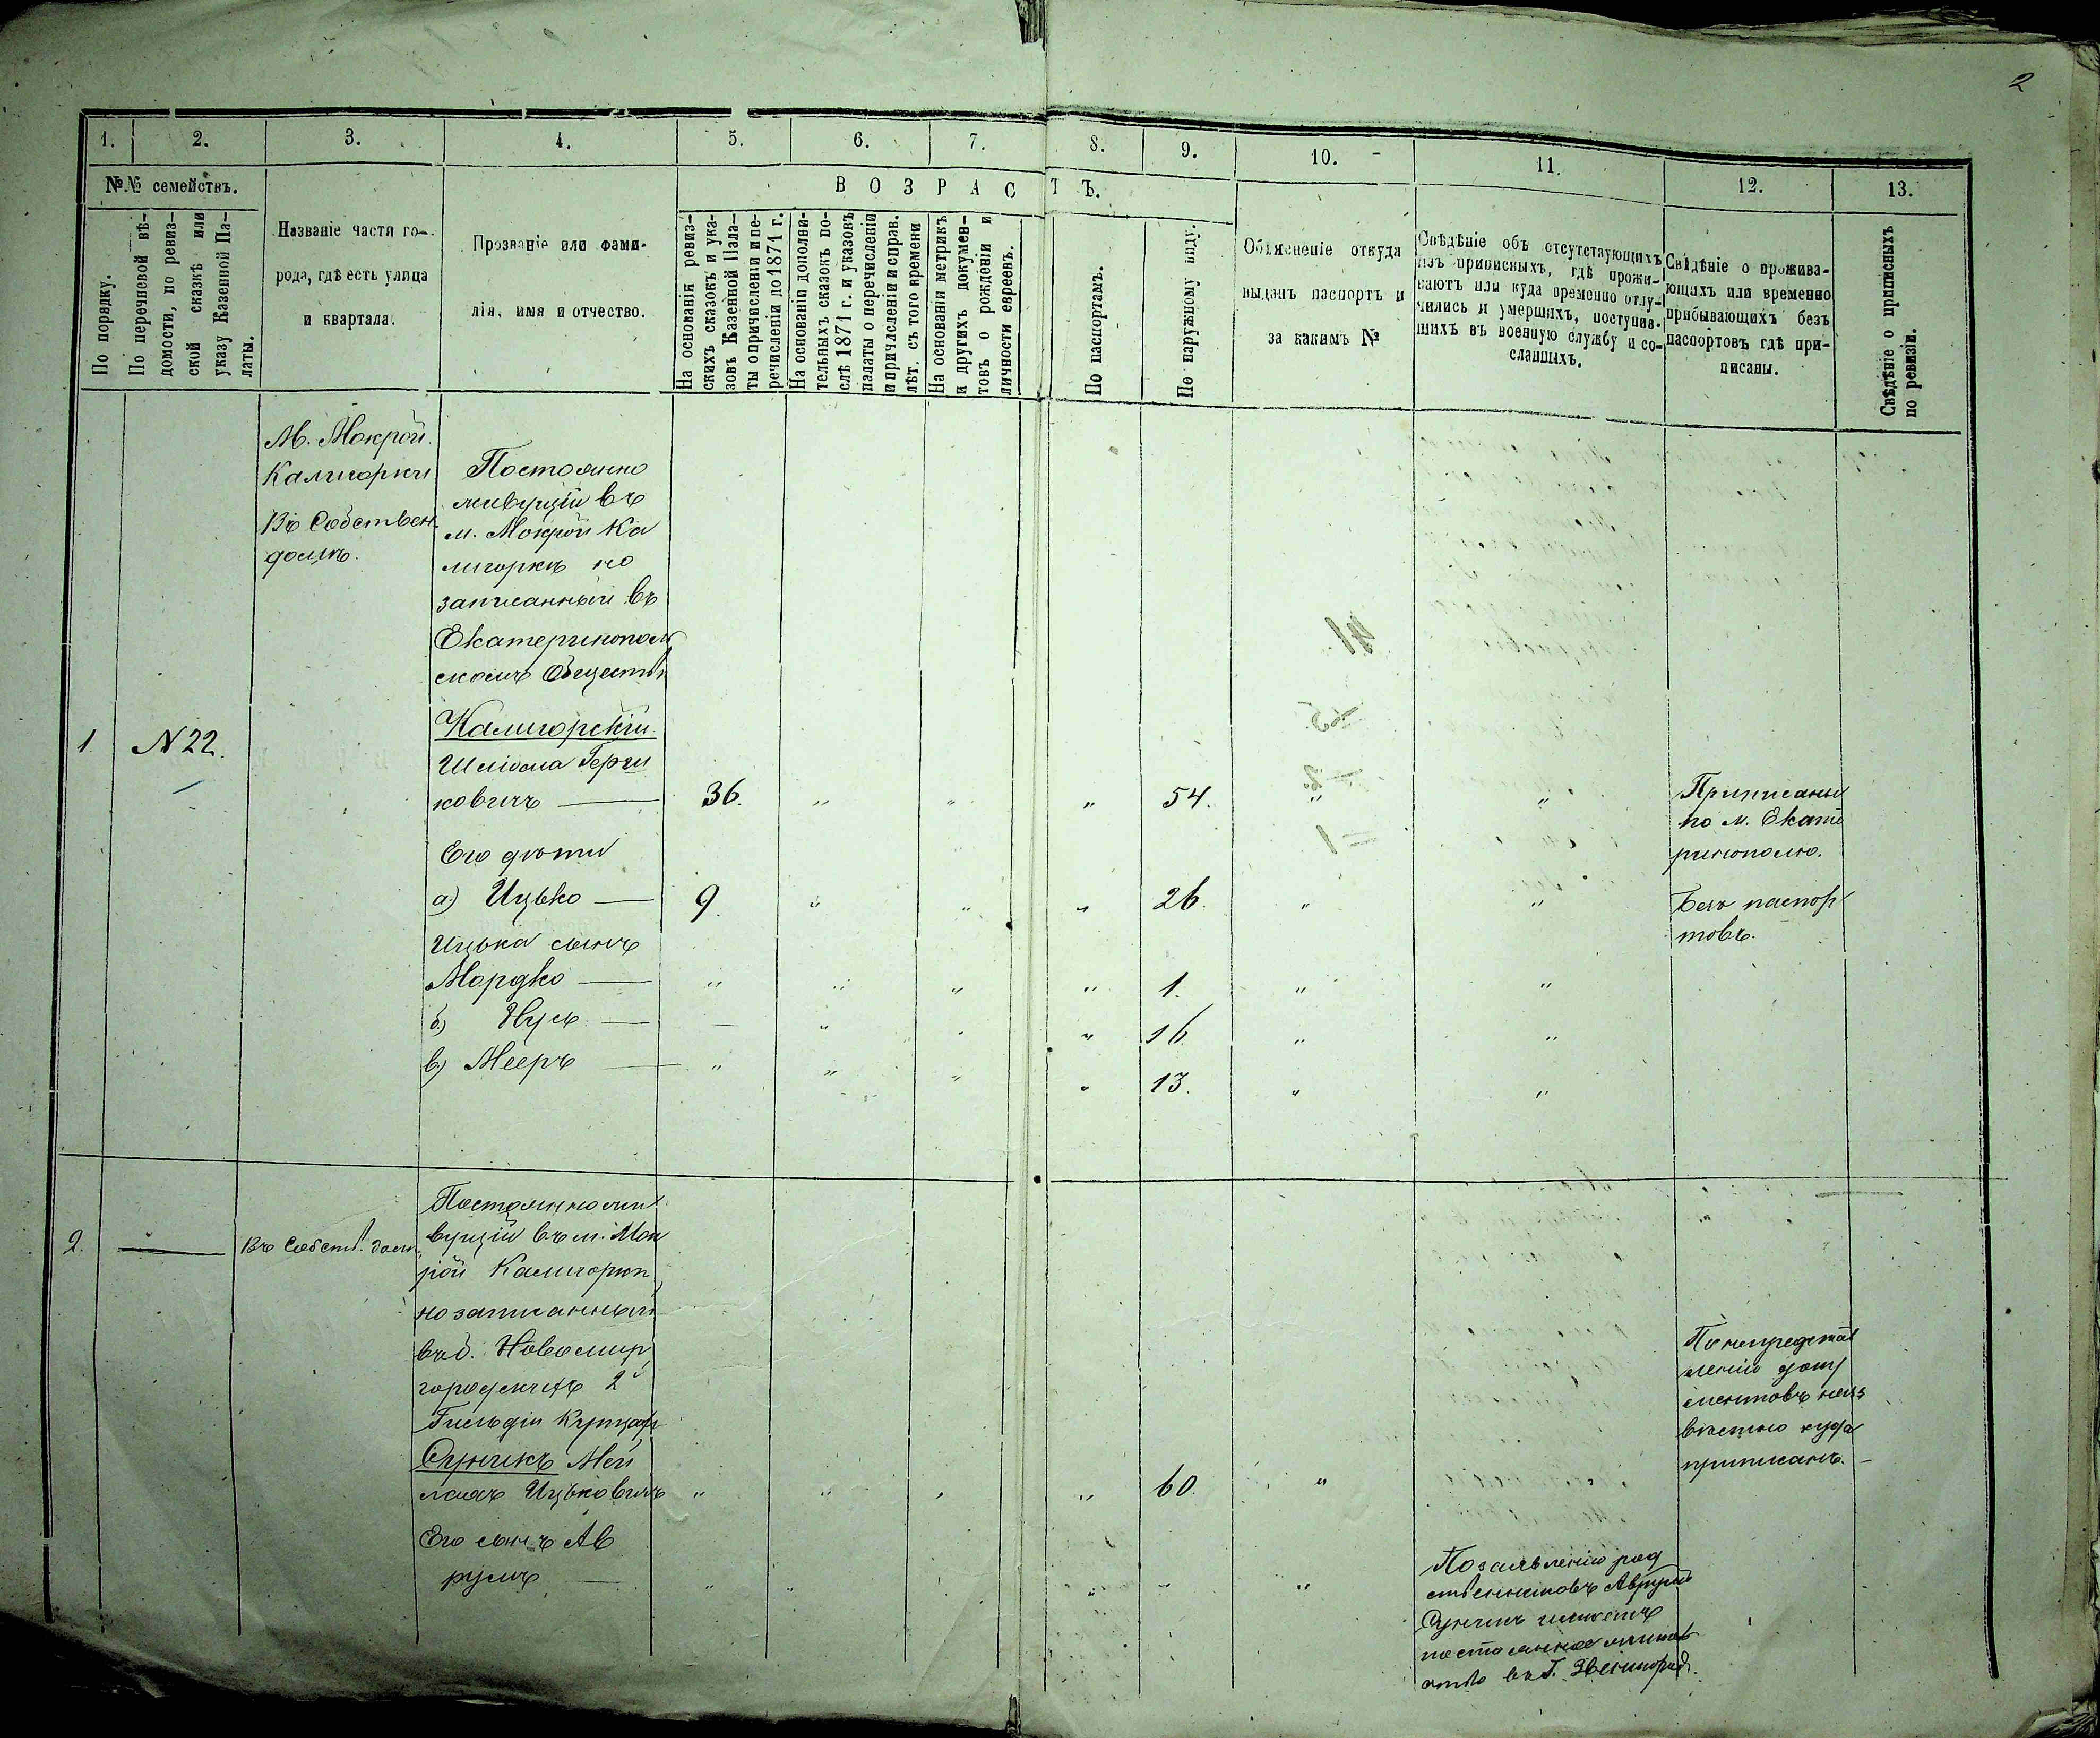 2
1. 2. 3. 4. 5. 6. 7. 8. 9. 10. 11. 12. 13.
№.№ семействъ.
ВОЗРАСТЪ.
По порядку.
По перечневой вѣ-
домости, по ревиз-
ской сказкѣ или
указу Казенной Па-
латы.
Названіе части го-
рода, гдѣ есть улица
и квартала.
Прозваніе или фами-
лія, имя и отчество.
На основаніи ревиз-
скихъ сказокъ и ука-
зовъ Казенной Пала-
ты о причисленіи и пе-
речисленіи до 1871 г.
На основаніи дополни-
тельныхъ сказокъ по-
слѣ 1871 г. и указовъ
палаты о перечисленіи
и причисленіи и справ.
лѣт. съ того времени
На основаніи метрикъ
и другихъ докумен-
товъ о рожденіи и
личности евреевъ.
По паспортамъ.
По наружному виду.
Объясненіе откуда
выданъ паспортъ и
за какимъ №
Свѣдѣніе объ отсутствующихъ
изъ приписныхъ, гдѣ прожи-
ваютъ или куда временно отлу-
чились и умершихъ, поступив-
шихъ въ военную службу и со-
сланныхъ.
Свѣдѣніе о прожива-
ющихъ или временно
прибывающихъ безъ
паспортовъ гдѣ при-
писаны.
Свѣдѣніе о приписныхъ
по ревизіи.
М. Мокрой
Калигорки
Въ Собствен.
домѣ.
Постоянно
живущій въ
м. Мокрой Ка
лигоркѣ но
записанный въ
Екатеринополь
скомъ Обществѣ
1 N 22.
Калигорскій
Шліома Герш
ковичъ — 36. " " " 54. " "
Приписаны
по м. Екате
ринополю.
Его дѣти
а) Ицько — 9. " " " 26. " "
Безъ паспор
товъ.
Ицька сынъ
Мордко — " " " " 1. " "
б) Нусъ — — " " " 16 " "
в) Мееръ — " " " " 13. " "
2. — Въ Собств. домѣ
Постоянно жи
вущій въ м. Мок
рой Калигоркѣ
но записанный
Новомир
городскихъ 2й
Гильдіи Купцахъ
Ицьковичъ " " " " 60. "
По непредстав
ленію доку
ментовъ неиз
вѣстно куда
приписанъ. —
Его сынъ Ав
румъ — " " " - "
По заявленію род
ственниковъ Аврумъ
имѣетъ
постоянное житель
ство въ Г. Звенигород.